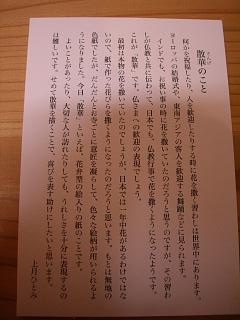 散華のこと
何かを祝福したり、人を歓迎したりする時に花を撒く習わしは世界中にあります。
ヨーロッパの結婚式や、東南アジアの客人を歓迎する舞踊などに見られます。
インドでも、お祝い事の時に花を撒いていたのだろうと思うのですが、その習わ
しが仏教と共に伝わって、日本でも、仏教行事で花を撒くようになったようです。
これが「散華」です。仏さまへの歓迎の表現でしょう。
最初は本物の花を撒いていたのでしょうが、日本では一年中花があるわけではな
いので、紙で作った花びらを撒くようになったのだろうと思います。もとは無地の
色紙でしたが、だんだんとお寺ごとに意匠を凝らして、色々な絵柄が用いられるよ
うになりました。今日「散華」といえば、花弁型の絵入りの紙のことです。
よいことがあったり、大切な人が訪れたりしても、うれしさを十分に表現するの
は難しいです。せめて散華を描くことで、喜びを表す助けにしたいと思います。
上月ひとみ